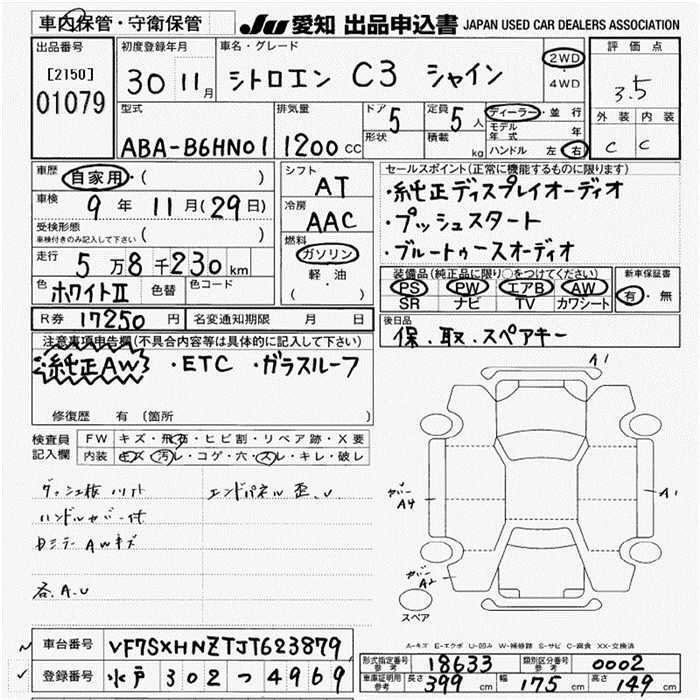 車内保管・守衛保管
JU 愛知 出品申込書 JAPAN USED CAR DEALERS ASSOCIATION
出品番号 [2150] 01079
初度登録年月 30 11月
車名・グレード シトロエン C3 シャイン
2WD・4WD
評価点 3.5
外装 C 内装 C
型式 ABA-B6HN01
排気量 1200 CC
ドア 5 形状
定員 5人 積載 kg
ディーラー・並行
モデル年式 年
ハンドル 左 右
車歴 自家用・( )
車検 9年 11月(29日)
受検形態 車検付きのみ記入して下さい ( )
走行 5万8千230km
色 ホワイトII 色替 色コード
シフト AT
冷房 AAC
燃料 ガソリン 軽・油 ( )
セールスポイント(正常に機能するものに限ります)
・純正ディスプレイオーディオ
・プッシュスタート
・ブルートゥースオーディオ
装備品(純正品に限り○をつけてください)
PS PW エアB AW
SR ナビ TV カワシート
新車保証書 有・無
R券 17250円 名変通知期限 月 日
後日品
保、取、スペアキー
注意事項申告欄(不具合内容等は具体的に記入して下さい)
純正AW ・ETC ・ガラスルーフ
修復歴 有(箇所 )
検査員記入欄
FW キズ・飛石・ヒビ割・リペア跡・X要
内装 キズ・汚レ・コゲ・穴・スレ・キレ・破レ
エンドパネル歪、U
ハンドルカバー付
AWキズ
各A.U
A1
カバー A4
A1
カバー A2
スペア
A-キズ E-エクボ U-凹み W-補修跡 S-サビ C-腐食 XX-交換済
車台番号 VF7SXHNZTJT623879
登録番号 水戸 302 つ 4969
型式指定番号 参考 18633 類別区分番号 参考 0002
車庫証明用 参考 長さ 399 cm 幅 175 cm 高さ 149 cm